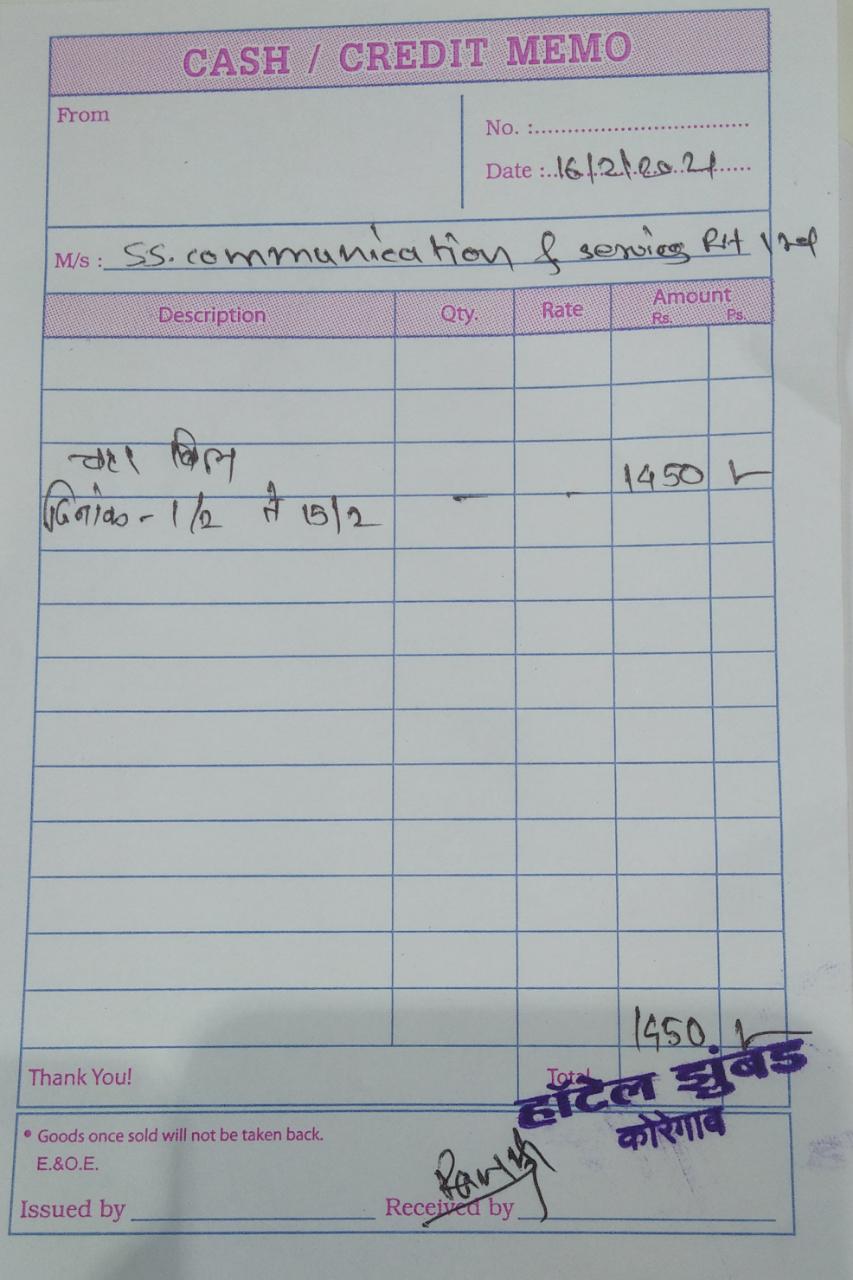 CASH / CREDIT MEMO
From
No. :
Date : 16/2/2021
M/s : SS. communication & servics Pvt ltd
Description Qty. Rate Amount
Rs. Ps.
चहा बिल 1450
दिनांक - 1/2 ते 15/2 - -
1450
Thank You! Total
हॉटेल झुंबड
कोरेगाव
• Goods once sold will not be taken back.
E.&O.E.
Issued by Received by